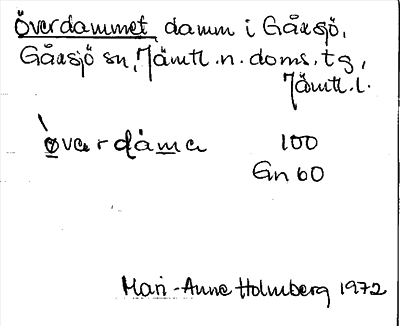 Överdammet, damm i Gåxsjö,
Gåxsjö sn, Jämtl. n. doms. tg,
Jämtl. l.
òverdáma 100
Gn 60
Mari-Anne Holmberg 1972